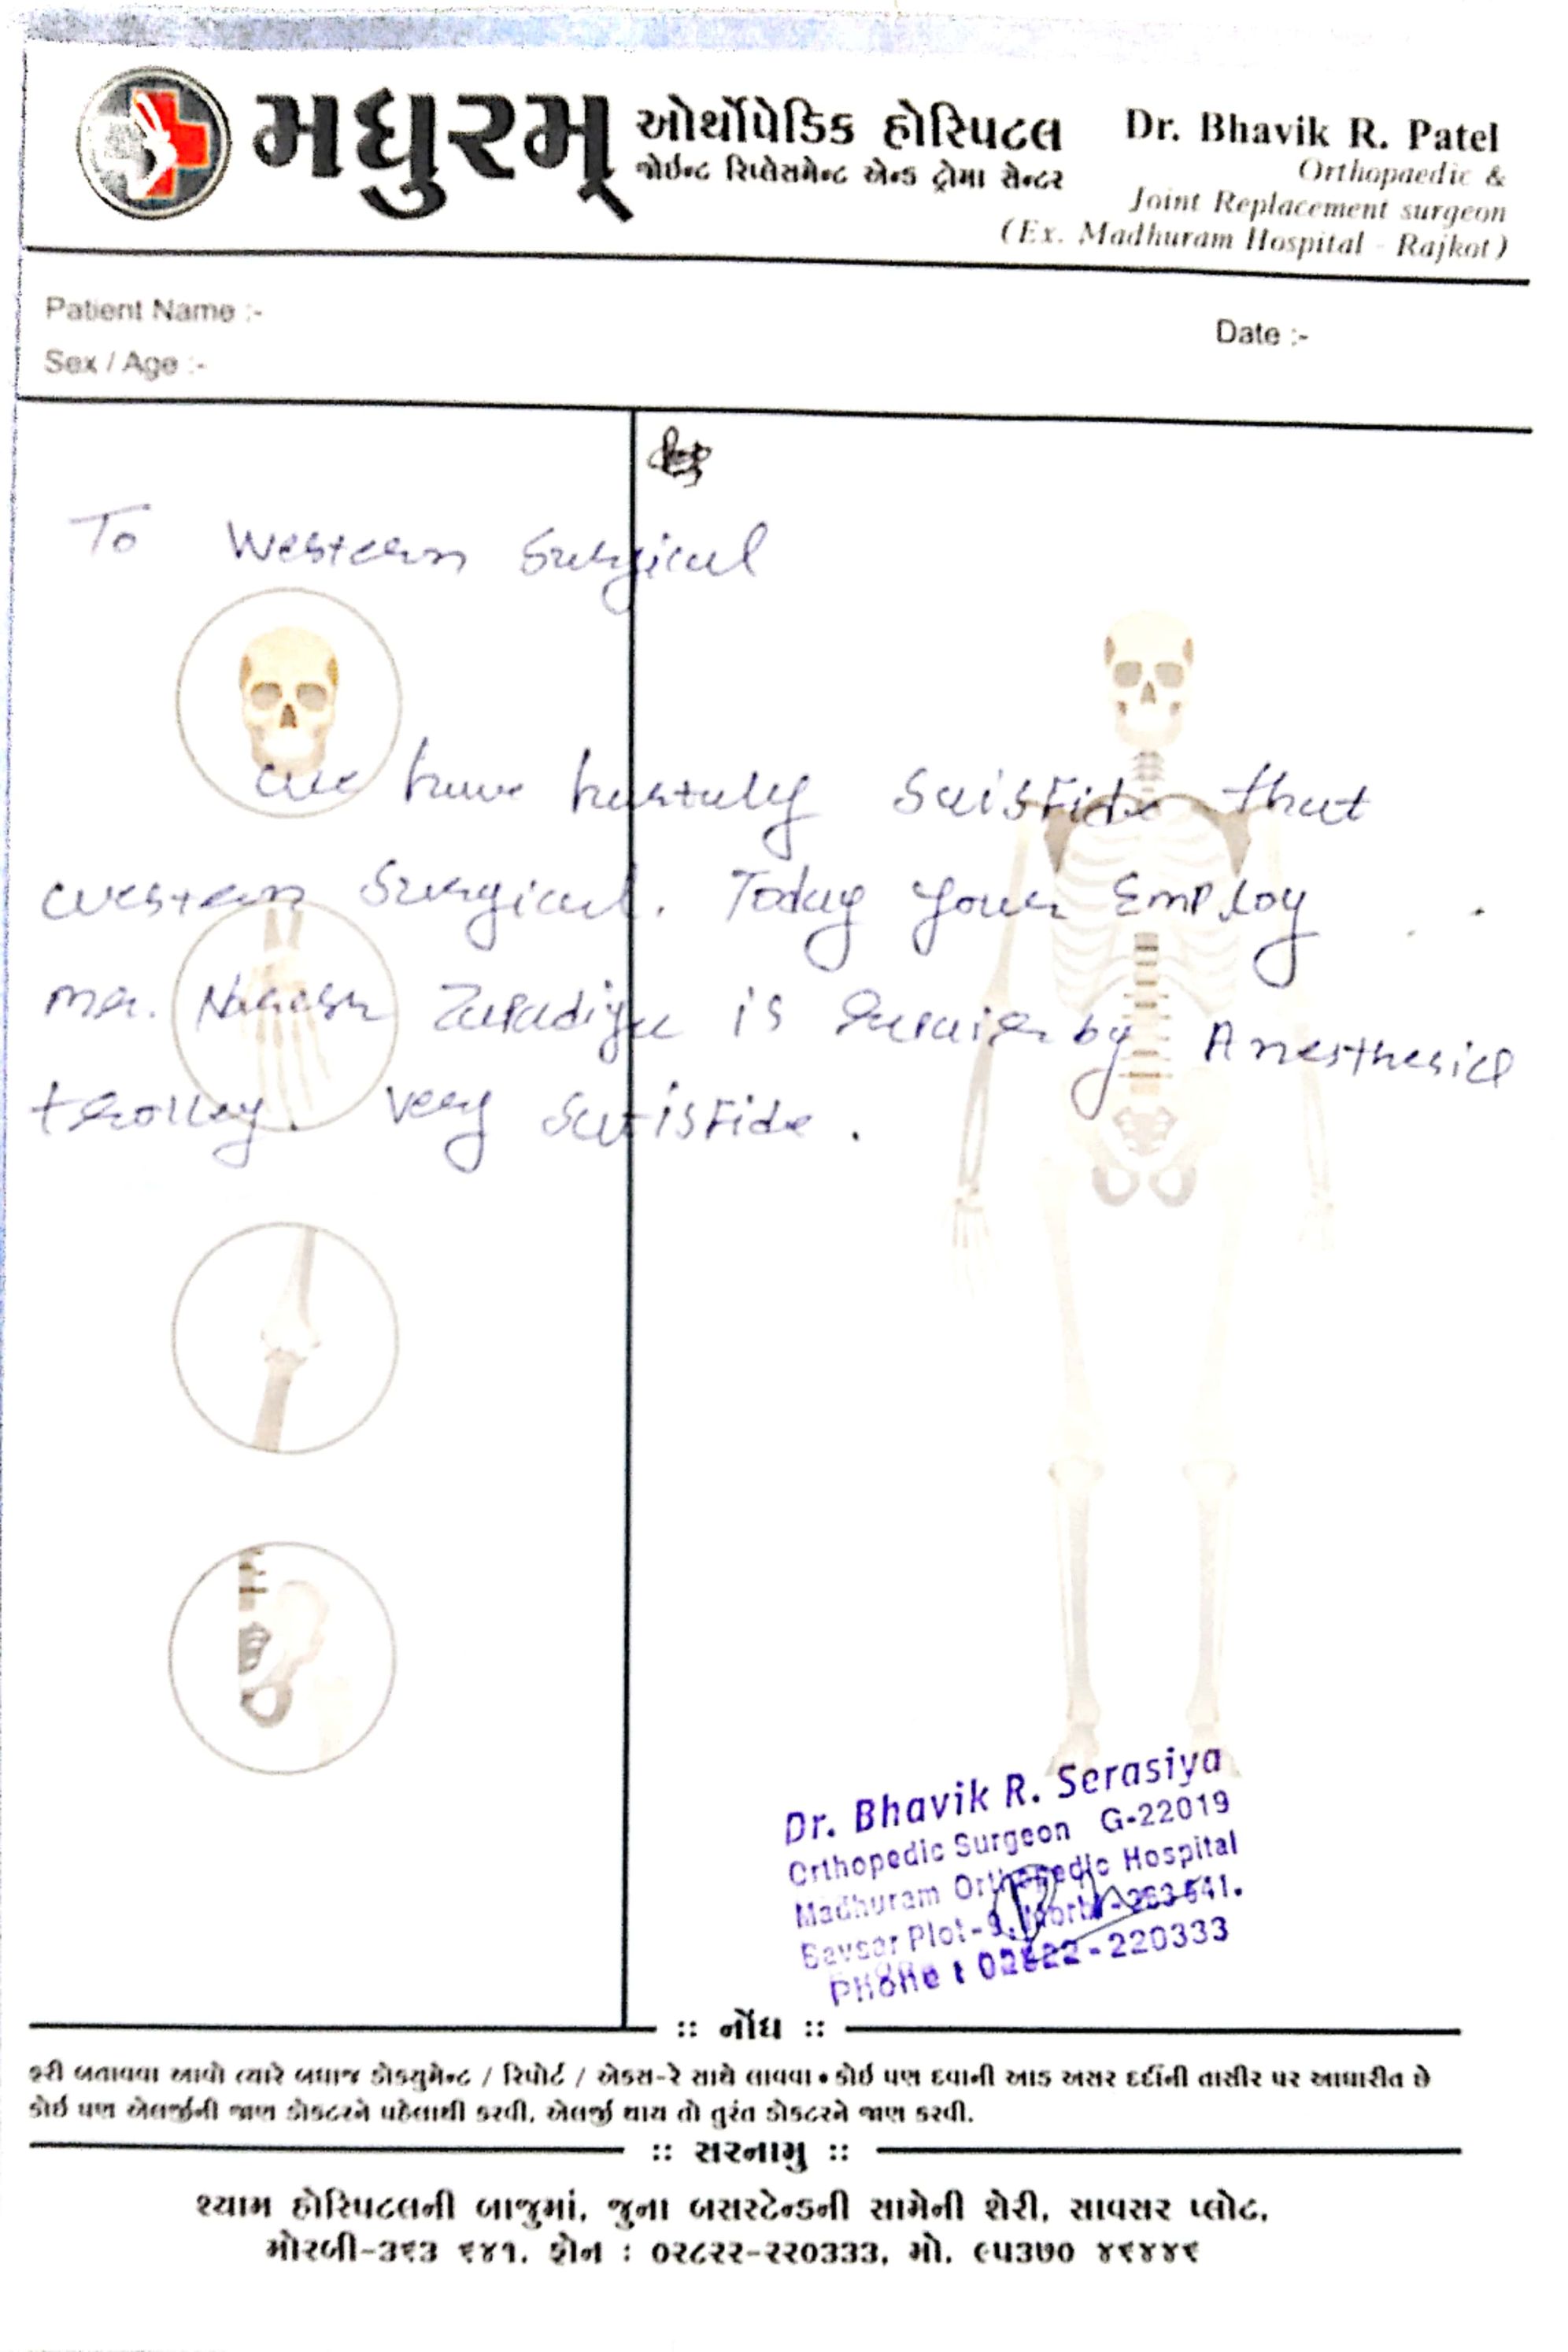 મધુરમ્ ઓર્થોપેડિક હોસ્પિટલ
જોઈન્ટ રિપ્લેસમેન્ટ એન્ડ ટ્રોમા સેન્ટર
Dr. Bhavik R. Patel
Orthopaedic &
Joint Replacement surgeon
(Ex. Madhuram Hospital - Rajkot)
Patient Name :-
Date :-
Sex / Age :-
To Western Surgical
we have satisfide that
western Surgical. Today your Employ
mr. Naresh is by Anesthesia
trolley. very satisfide.
Dr. Bhavik R. Serasiya
Orthopedic Surgeon G-22019
Madhuram Orthopedic Hospital
Savsar Plot-9, Morbi-363 641.
Phone : 02822-220333
:: નોંધ ::
ફરી બતાવવા આવો ત્યારે બધાજ ડોક્યુમેન્ટ / રિપોર્ટ / એકસ-રે સાથે લાવવા • કોઈ પણ દવાની આડ અસર દર્દીની તાસીર પર આધારીત છે
કોઈ પણ એલર્જીની જાણ ડોકટરને પહેલાથી કરવી, એલર્જી થાય તો તુરંત ડોકટરને જાણ કરવી.
:: સરનામુ ::
શ્યામ હોસ્પિટલની બાજુમાં, જુના બસસ્ટેન્ડની સામેની શેરી, સાવસર પ્લોટ,
મોરબી-૩૬૩ ૬૪૧. ફોન : ૦૨૮૨૨-૨૨૦૩૩૩, મો. ૯૫૩૭૦ ૪૬૪૪૬